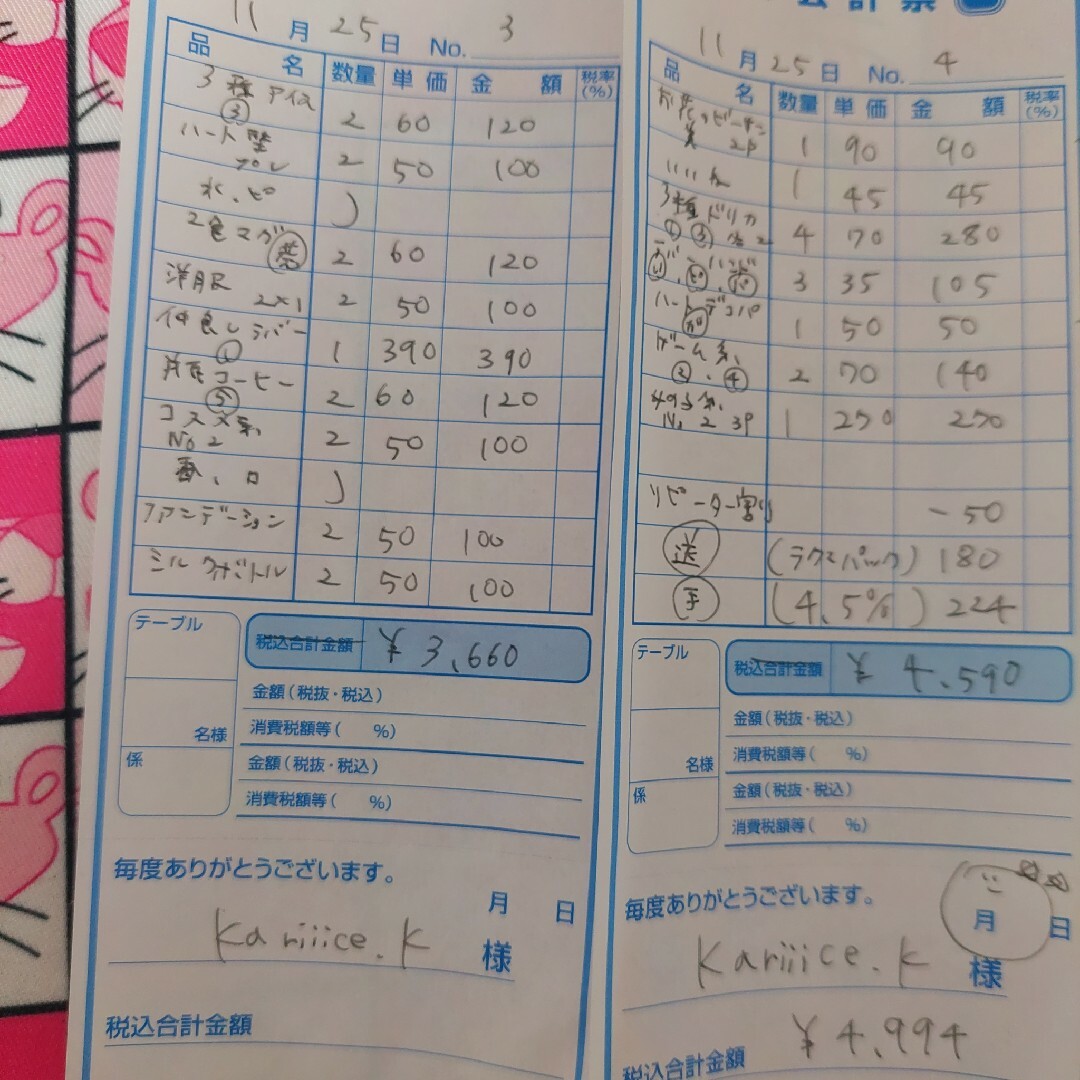 11月25日 No. 3
品名 数量 単価 金額 税率(%)
3種アイス ③ 2 60 120
ハート型 プレ 2 50 100
水、ピ )
2食マカ 2 60 120
洋服 2×1 2 50 100
仲良しラバー ① 1 390 390
コーヒー ⑤ 2 60 120
コスメ系 No2 2 50 100
、白 )
ファンデーション 2 50 100
ミルクボトル 2 50 100
テーブル
名様
係
税込合計金額 ¥3,660
金額(税抜・税込)
消費税額等( %)
金額(税抜・税込)
消費税額等( %)
毎度ありがとうございます。
月 日
Kariiice.K 様
税込合計金額
会計票
11月25日 No. 4
品名 数量 単価 金額 税率(%)
2P 1 90 90
1 45 45
3種ドリカ ① ③ 各2 4 70 280
3 35 105
ハートデコパ 1 50 50
ゲーム系、 ②、④ 2 70 140
No 2 3P 1 270 270
リピーター割り -50
送 (ラクマパック) 180
手 (4,5%) 224
テーブル
名様
係
税込合計金額 ¥4,590
金額(税抜・税込)
消費税額等( %)
金額(税抜・税込)
消費税額等( %)
毎度ありがとうございます。
月 日
Kariiice.K 様
税込合計金額 ¥4,994